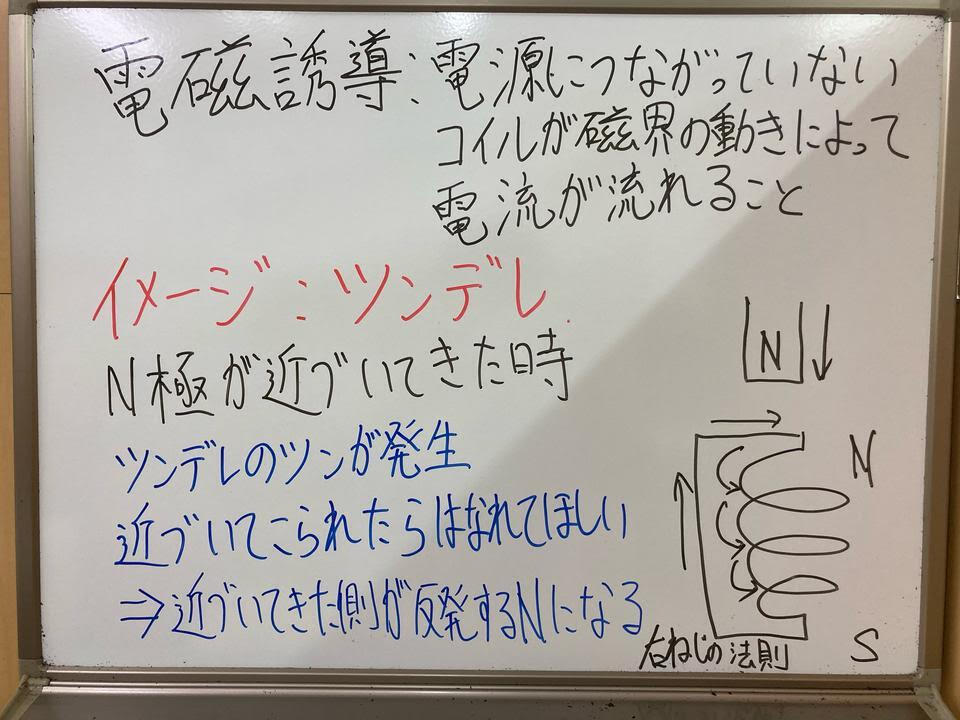 電磁誘導:電源につながっていない
コイルが磁界の動きによって
電流が流れること
イメージ:ツンデレ
N極が近づいてきた時
ツンデレのツンが発生
近づいてこられたらはなれてほしい
⇒近づいてきた側が反発するNになる
N
N
S
右ねじの法則